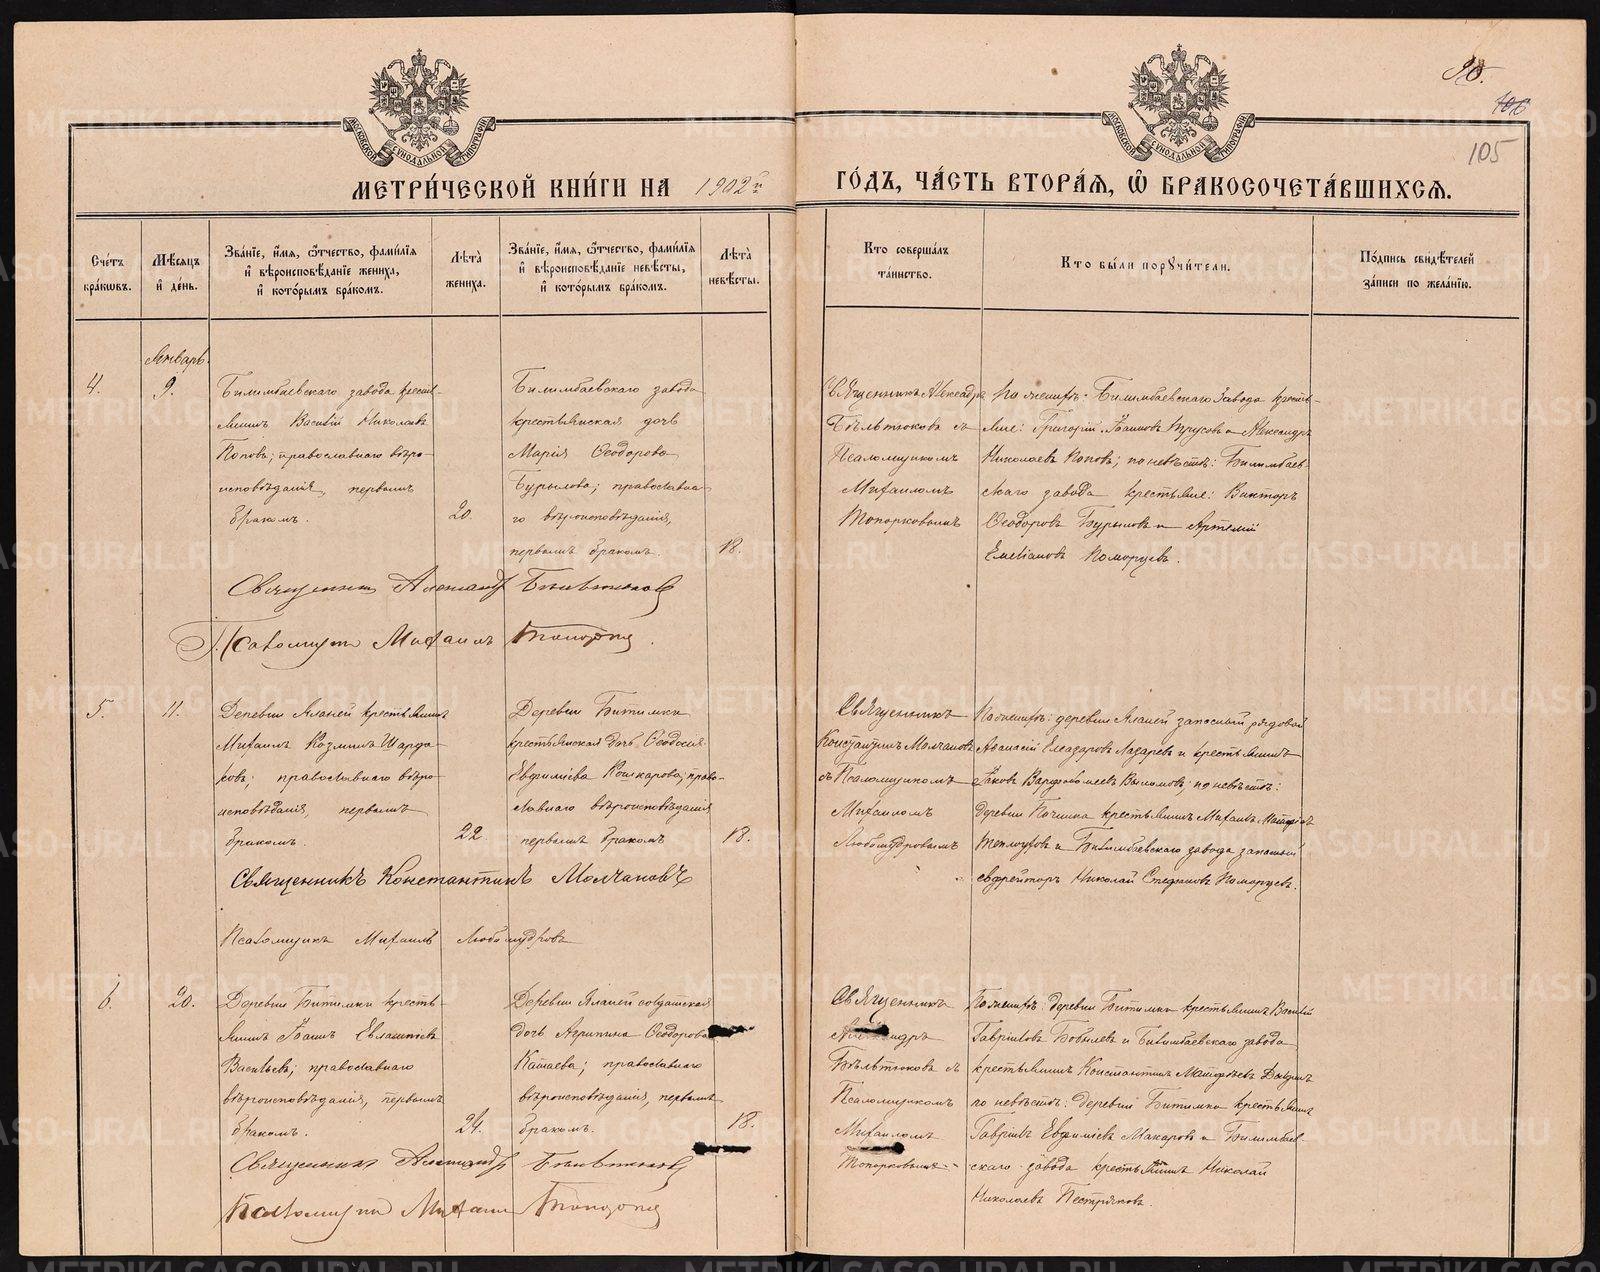 95.
106
105
МОСКОВСКОЙ СѴНОДАЛЬНОЙ ТИПОГРАФІИ
МОСКОВСКОЙ СѴНОДАЛЬНОЙ ТИПОГРАФІИ
МЕТРИ́ЧЕСКОЙ КНИ́ГИ НА 1902й ГО́ДЪ, ЧА́СТЬ ВТОРА́Ѧ, Ѽ БРАКОСОЧЕТА́ВШИХСѦ.
Сче́тъ бра́кѡвъ.
Мѣ́сяцъ и҆ де́нь.
Зва́нїе, и҆́мя, ѻ҆́тчество, фами́лїя и҆ вѣроисповѣ́данїе жениха̀, и҆ кото́рымъ бра́комъ.
Лѣта̀ жениха̀.
Зва́нїе, и҆́мя, ѻ҆́тчество, фами́лїя и҆ вѣроисповѣ́данїе невѣ́сты, и҆ кото́рымъ бра́комъ.
Лѣта̀ невѣ́сты.
Кто соверша́лъ та́инство.
Кто бы́ли порꙋчи́тели.
По́дпись свидѣ́телей за́писи по жела́нїю.
Январь.
4.
9.
Билимбаевскаго завода кресть-
янинъ Василій Николаевъ
Поповъ; православнаго вѣро-
исповѣданія, первымъ
бракомъ.
20.
Билимбаевскаго завода
крестьянская дочь
Марія Ѳеодорова
Бурылова; православна-
го вѣроисповѣданія,
первымъ бракомъ.
18.
Священникъ Александръ
Бѣльтюковъ съ
Псаломщикомъ
Михаиломъ
Топорковымъ
По женихѣ: Билимбаевскаго завода кресть-
яне: Григорій Іоанновъ Трусовъ и Александръ
Николаевъ Поповъ; по невѣстѣ: Билимбаев-
скаго завода крестьяне: Викторъ
Ѳеодоровъ Бурыловъ и Артемій
Емеліановъ Поморцевъ.
Священникъ Александръ Бѣльтюковъ
Псаломщикъ Михаилъ Топорковъ
5.
11.
Деревни крестьянинъ
Михаилъ Козминъ Шарда-
ковъ; православнаго вѣро-
исповѣданія, первымъ
бракомъ.
22.
Деревни Битимки
крестьянская дочь Ѳеодосія
Евфиміева Кошкарова; право-
славнаго вѣроисповѣданія
первымъ бракомъ
18.
Священникъ
Константинъ Молчановъ
съ Псаломщикомъ
Михаиломъ
Любомудровымъ
По женихѣ: деревни запасный рядовой
Аѳанасій Елеазаровъ Лазаревъ и крестьянинъ
Іаковъ Варѳоломеевъ; по невѣстѣ:
деревни Починка крестьянинъ Михаилъ
Теплоуховъ и Билимбаевскаго завода запасный
ефрейторъ Николай Стефановъ Поморцевъ.
Священникъ Константинъ Молчановъ
Псаломщикъ Михаилъ Любомудровъ
6.
20.
Деревни Битимки кресть-
янинъ Іоаннъ
Васильевъ; православнаго
вѣроисповѣданія, первымъ
бракомъ.
24.
Деревни солдатская
дочь Агрипина Ѳеодорова
православнаго
вѣроисповѣданія, первымъ
бракомъ.
18.
Священникъ
Александръ
Бѣльтюковъ съ
Псаломщикомъ
Михаиломъ
Топорковымъ
По женихѣ: деревни Битимки крестьянинъ Василій
Гавріиловъ Бобылевъ и Билимбаевскаго завода
крестьянинъ Константинъ
по невѣстѣ: деревни Битимки крестьянинъ
Гавріилъ Евфиміевъ Макаровъ и Билимбаев-
скаго завода крестьянинъ Николай
Николаевъ Пестряковъ.
Священникъ Александръ Бѣльтюковъ
Псаломщикъ Михаилъ Топорковъ
METRIKI.GASO-URAL.RU